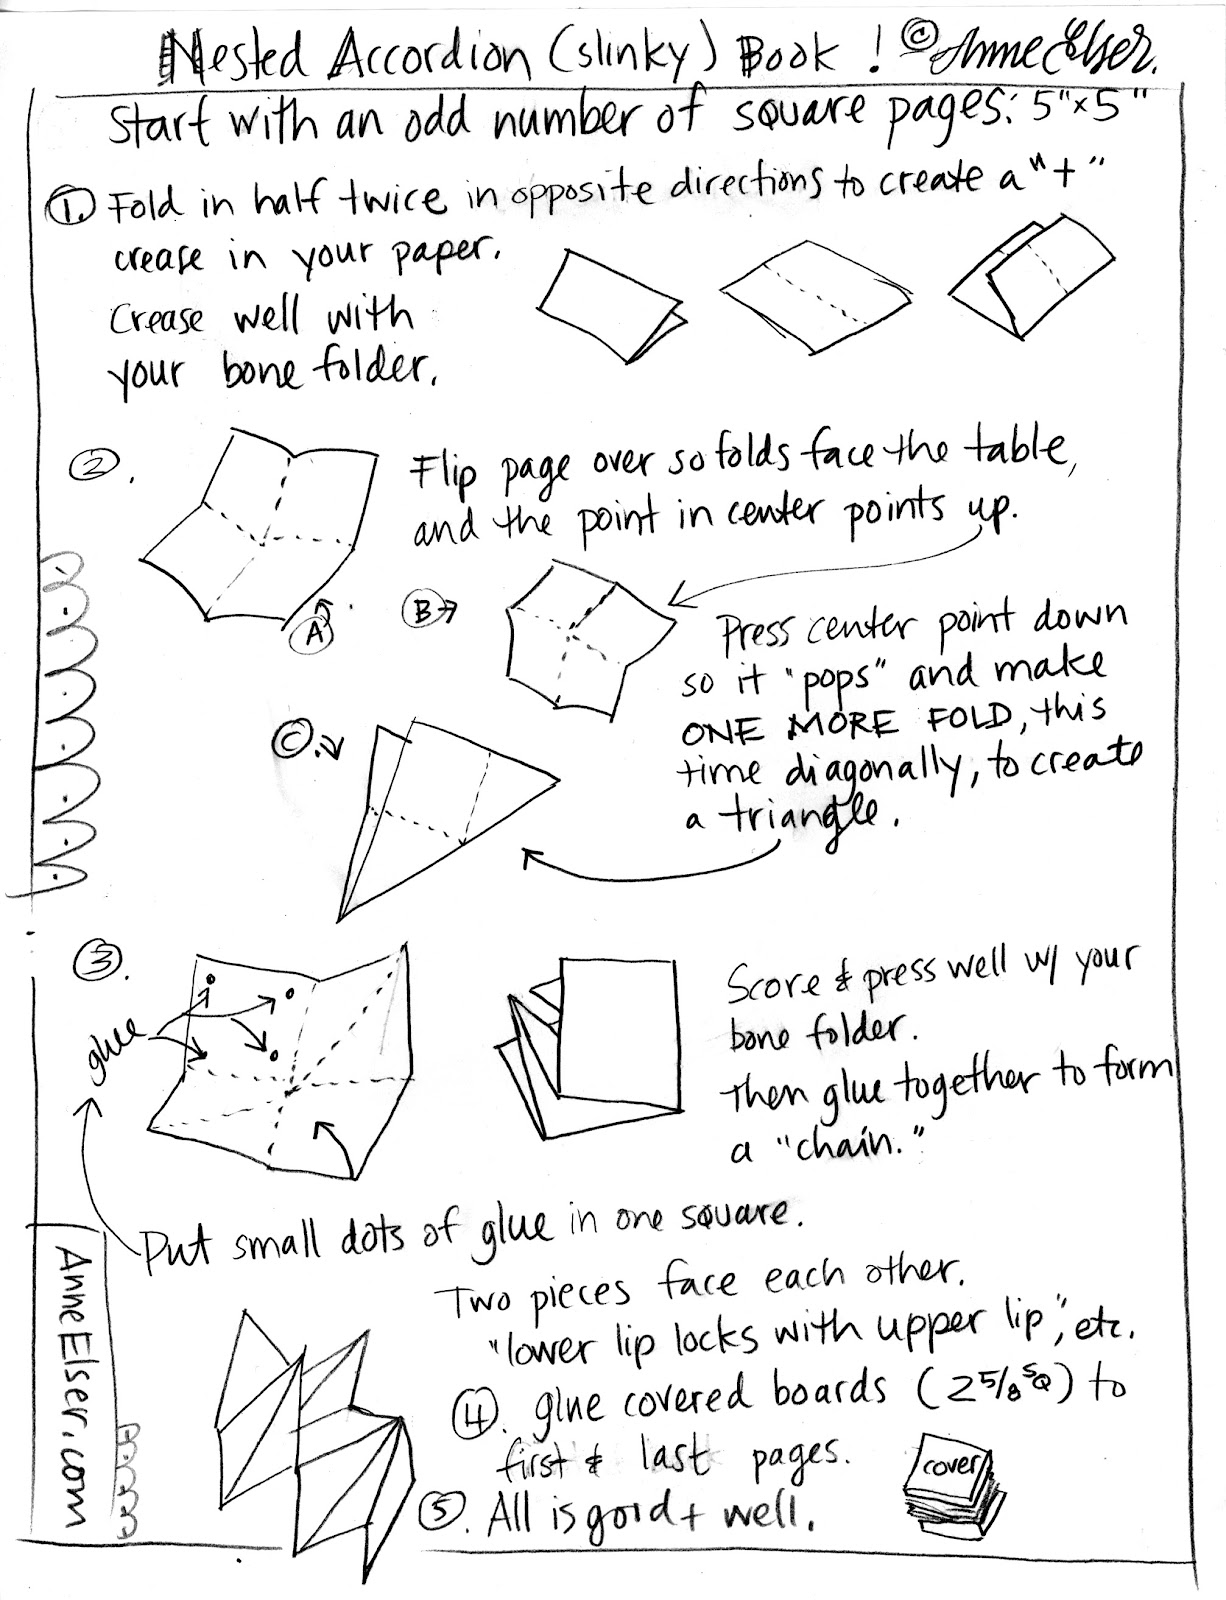 Nested Accordion (slinky) Book ! © Anne Elser.
Start with an odd number of square pages: 5"x5"
1. Fold in half twice in opposite directions to create a "+"
crease in your paper.
Crease well with
your bone folder.
2. Flip page over so folds face the table,
and the point in center points up.
A
B
Press center point down
so it "pops" and make
ONE MORE FOLD, this
time diagonally, to create
a triangle.
C.
3.
glue
Score & press well w/ your
bone folder.
Then glue together to form
a "chain."
Put small dots of glue in one square.
Two pieces face each other.
"lower lip locks with upper lip", etc.
4. glue covered boards (2 5/8 SQ) to
first & last pages.
cover
5. All is good + well.
AnneElser.com